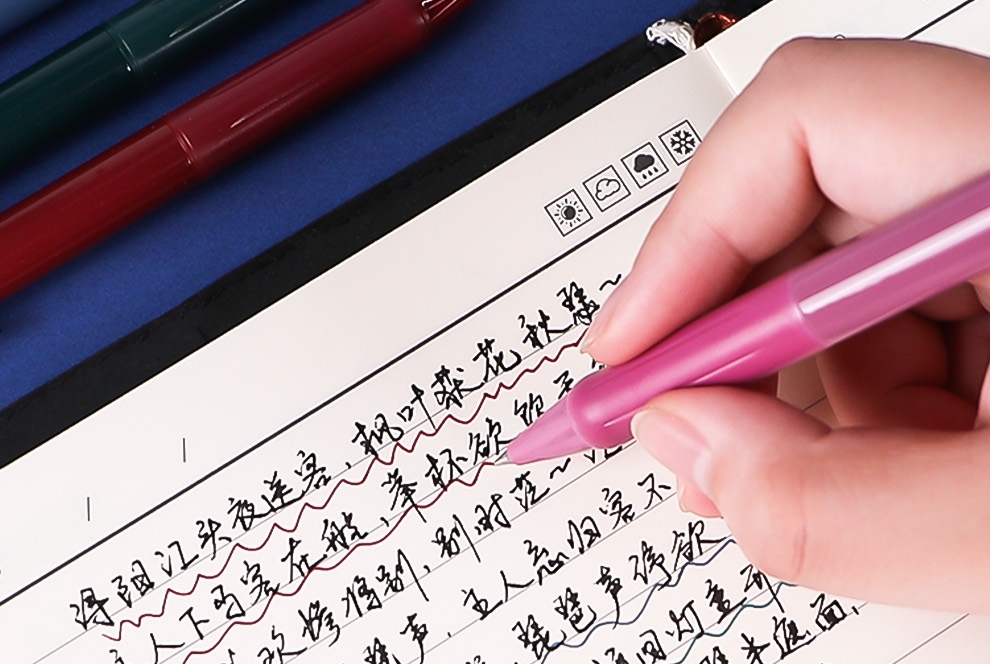 浔阳江头夜送客,枫叶荻花秋瑟~
主人下马客在船,举杯欲饮无
欢惨将别,别时茫~
琶声,主人忘归客不
琵琶声停欲
回灯重开
半遮面,